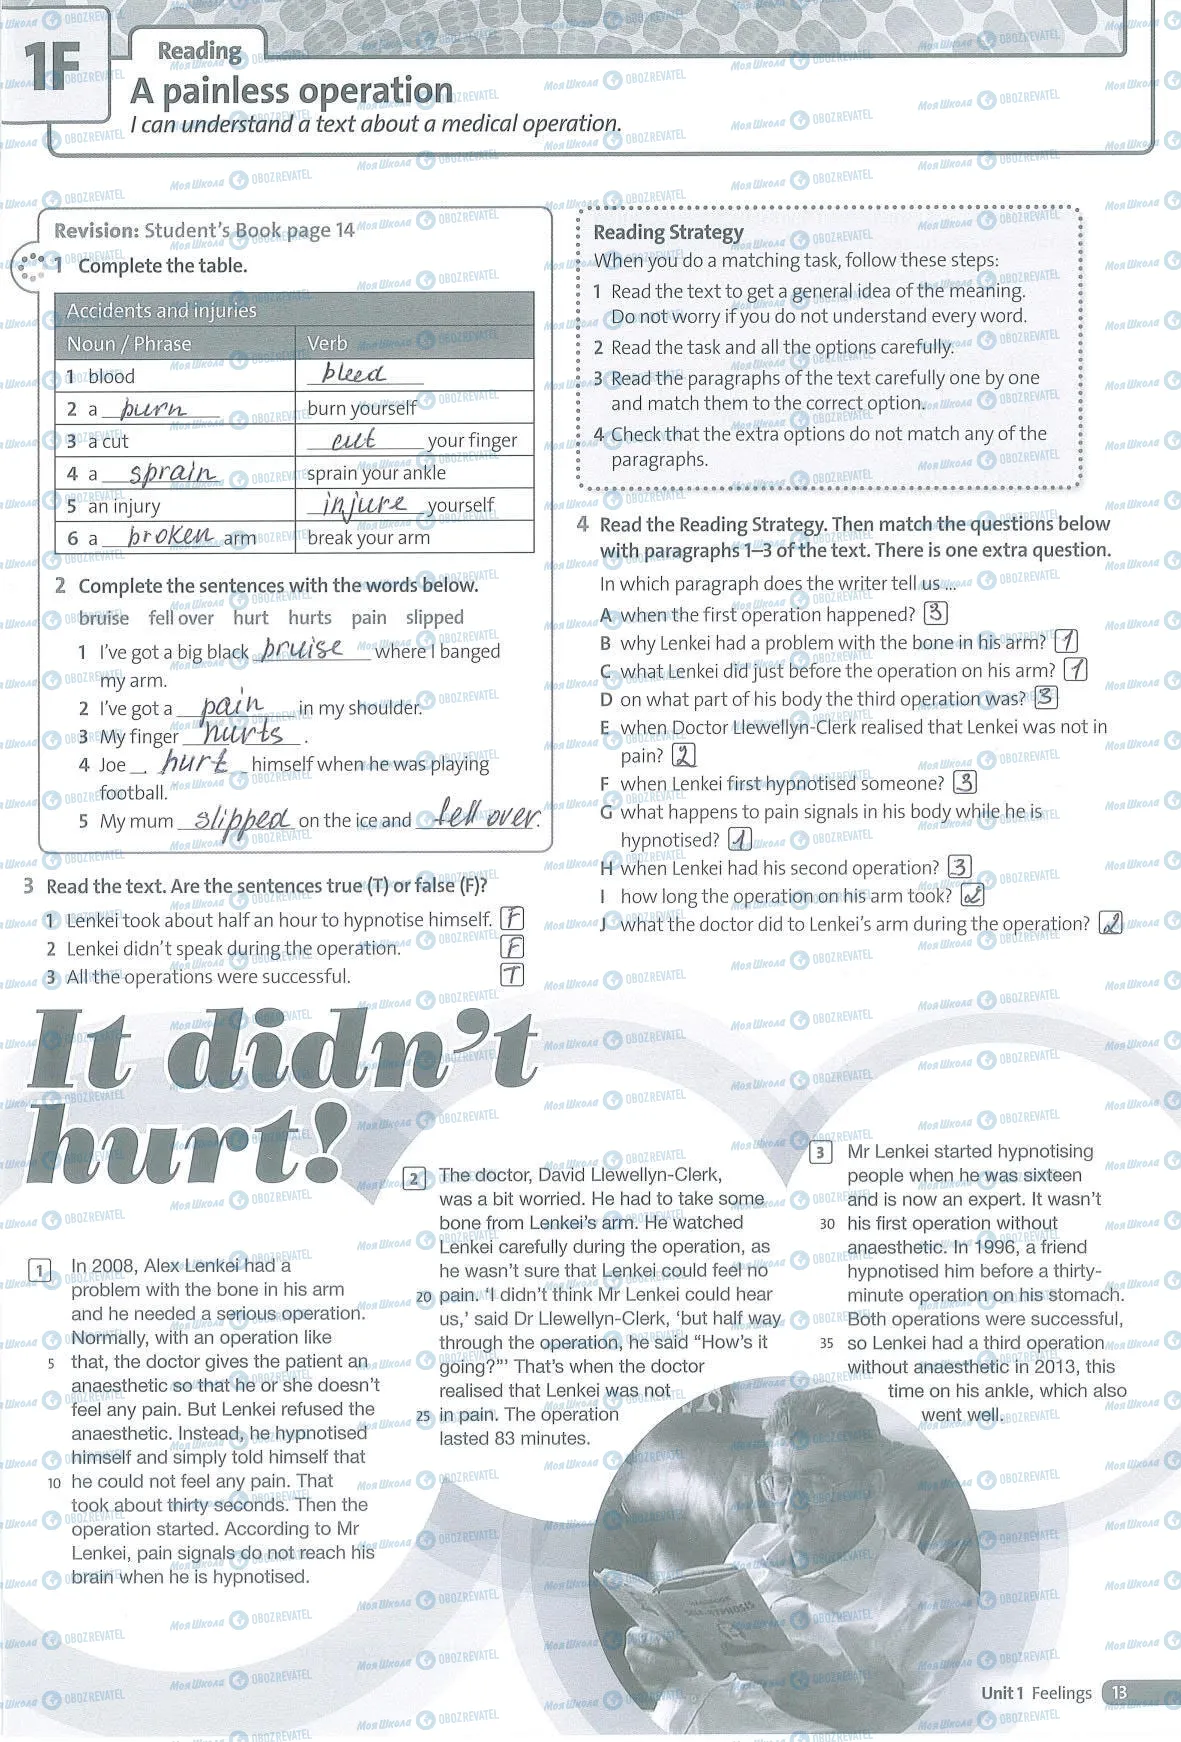 1F
Reading
A painless operation
I can understand a text about a medical operation.
Revision: Student's Book page 14
1 Complete the table.
Accidents and injuries
Noun / Phrase Verb
1 blood bleed
2 a burn burn yourself
3 a cut cut your finger
4 a sprain sprain your ankle
5 an injury injure yourself
6 a broken arm break your arm
2 Complete the sentences with the words below.
bruise fell over hurt hurts pain slipped
1 I've got a big black bruise where I banged
my arm.
2 I've got a pain in my shoulder.
3 My finger hurts.
4 Joe hurt himself when he was playing
football.
5 My mum slipped on the ice and fell over.
3 Read the text. Are the sentences true (T) or false (F)?
1 Lenkei took about half an hour to hypnotise himself. F
2 Lenkei didn't speak during the operation. F
3 All the operations were successful. T
Reading Strategy
When you do a matching task, follow these steps:
1 Read the text to get a general idea of the meaning.
Do not worry if you do not understand every word.
2 Read the task and all the options carefully.
3 Read the paragraphs of the text carefully one by one
and match them to the correct option.
4 Check that the extra options do not match any of the
paragraphs.
4 Read the Reading Strategy. Then match the questions below
with paragraphs 1–3 of the text. There is one extra question.
In which paragraph does the writer tell us ...
A when the first operation happened? 3
B why Lenkei had a problem with the bone in his arm? 1
C what Lenkei did just before the operation on his arm? 1
D on what part of his body the third operation was? 3
E when Doctor Llewellyn-Clerk realised that Lenkei was not in
pain? 2
F when Lenkei first hypnotised someone? 3
G what happens to pain signals in his body while he is
hypnotised? 1
H when Lenkei had his second operation? 3
I how long the operation on his arm took? 2
J what the doctor did to Lenkei's arm during the operation? 2
It didn't
hurt!
1 In 2008, Alex Lenkei had a
problem with the bone in his arm
and he needed a serious operation.
Normally, with an operation like
5 that, the doctor gives the patient an
anaesthetic so that he or she doesn't
feel any pain. But Lenkei refused the
anaesthetic. Instead, he hypnotised
himself and simply told himself that
10 he could not feel any pain. That
took about thirty seconds. Then the
operation started. According to Mr
Lenkei, pain signals do not reach his
brain when he is hypnotised.
2 The doctor, David Llewellyn-Clerk,
was a bit worried. He had to take some
bone from Lenkei's arm. He watched
Lenkei carefully during the operation, as
he wasn't sure that Lenkei could feel no
20 pain. 'I didn't think Mr Lenkei could hear
us,' said Dr Llewellyn-Clerk, 'but half way
through the operation, he said "How's it
going?"' That's when the doctor
realised that Lenkei was not
25 in pain. The operation
lasted 83 minutes.
3 Mr Lenkei started hypnotising
people when he was sixteen
and is now an expert. It wasn't
30 his first operation without
anaesthetic. In 1996, a friend
hypnotised him before a thirty-
minute operation on his stomach.
Both operations were successful,
35 so Lenkei had a third operation
without anaesthetic in 2013, this
time on his ankle, which also
went well.
Unit 1 Feelings 13
МояШкола OBOZREVATEL